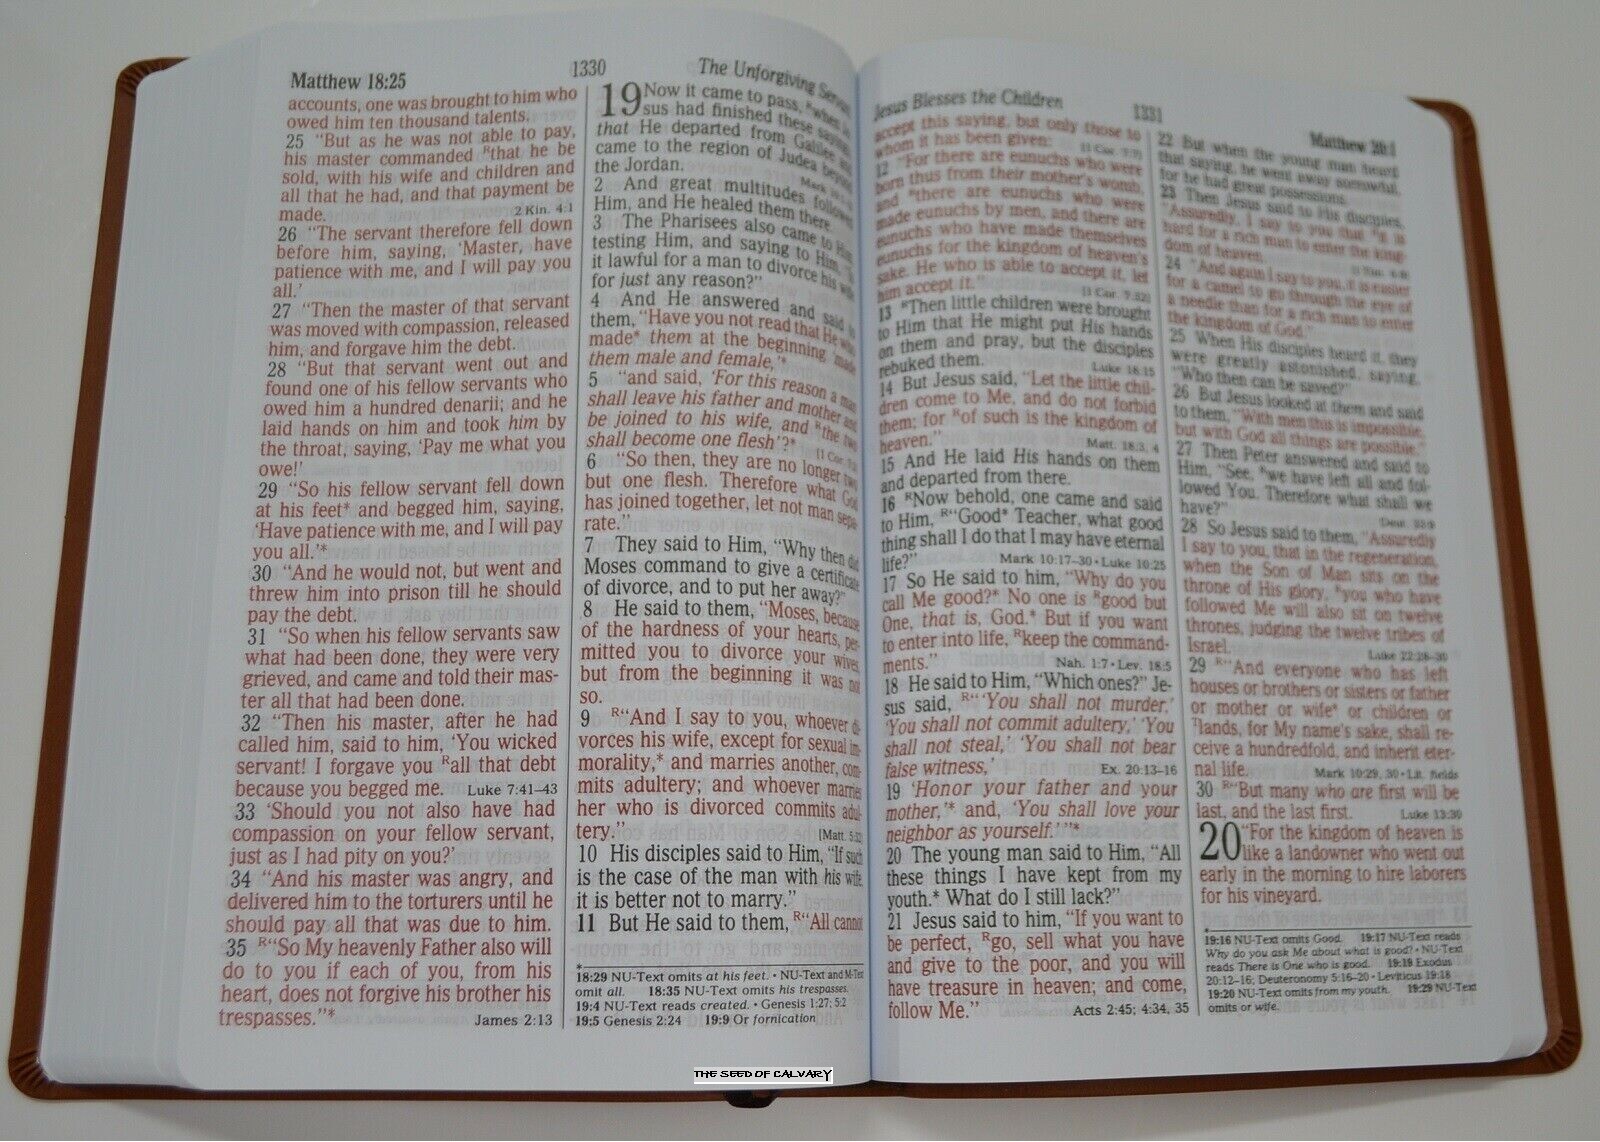 Matthew 18:25
1330
The Unforgiving
accounts, one was brought to him who
owed him ten thousand talents.
25 “But as he was not able to pay,
his master commanded ᴿthat he be
sold, with his wife and children and
all that he had, and that payment be
made. 2 Kin. 4:1
26 “The servant therefore fell down
before him, saying, ‘Master, have
patience with me, and I will pay you
all.’
27 “Then the master of that servant
was moved with compassion, released
him, and forgave him the debt.
28 “But that servant went out and
found one of his fellow servants who
owed him a hundred denarii; and he
laid hands on him and took him by
the throat, saying, ‘Pay me what you
owe!’
29 “So his fellow servant fell down
at his feet* and begged him, saying,
‘Have patience with me, and I will pay
you all.’*
30 “And he would not, but went and
threw him into prison till he should
pay the debt.
31 “So when his fellow servants saw
what had been done, they were very
grieved, and came and told their mas-
ter all that had been done.
32 “Then his master, after he had
called him, said to him, ‘You wicked
servant! I forgave you ᴿall that debt
because you begged me. Luke 7:41–43
33 ‘Should you not also have had
compassion on your fellow servant,
just as I had pity on you?’
34 “And his master was angry, and
delivered him to the torturers until he
should pay all that was due to him.
35 ᴿ“So My heavenly Father also will
do to you if each of you, from his
heart, does not forgive his brother his
trespasses.”* James 2:13
19 Now it came to pass, ᴿwhen
sus had finished these
that He departed from Galilee
came to the region of Judea beyond
the Jordan.
2 And great multitudes followed
Him, and He healed them there.
3 The Pharisees also came to Him,
testing Him, and saying to Him,
it lawful for a man to divorce his wife
for just any reason?”
4 And He answered and said to
them, “Have you not read that He who
made* them at the beginning ‘made
them male and female,’*
5 “and said, ‘For this reason a man
shall leave his father and mother and
be joined to his wife, and ᴿthe two
shall become one flesh’?* [1 Cor.
6 “So then, they are no longer two
but one flesh. Therefore what God
has joined together, let not man sepa-
rate.”
7 They said to Him, “Why then did
Moses command to give a certificate
of divorce, and to put her away?”
8 He said to them, “Moses, because
of the hardness of your hearts, per-
mitted you to divorce your wives,
but from the beginning it was not
so.
9 ᴿ“And I say to you, whoever di-
vorces his wife, except for sexual im-
morality,* and marries another, com-
mits adultery; and whoever marries
her who is divorced commits adul-
tery.” [Matt. 5:32]
10 His disciples said to Him, “If such
is the case of the man with his wife,
it is better not to marry.”
11 But He said to them, ᴿ“All cannot
*
18:29 NU-Text omits at his feet. • NU-Text and M-Text
omit all. 18:35 NU-Text omits his trespasses.
19:4 NU-Text reads created. • Genesis 1:27; 5:2
19:5 Genesis 2:24 19:9 Or fornication
Jesus Blesses the Children
1331
Matthew 20:1
accept this saying, but only those to
whom it has been given: [1 Cor. 7:7]
12 “For there are eunuchs who were
born thus from their mother’s womb,
and ᴿthere are eunuchs who were
made eunuchs by men, and there are
eunuchs who have made themselves
eunuchs for the kingdom of heaven’s
sake. He who is able to accept it, let
him accept it.” [1 Cor. 7:32]
13 ᴿThen little children were brought
to Him that He might put His hands
on them and pray, but the disciples
rebuked them. Luke 18:15
14 But Jesus said, “Let the little chil-
dren come to Me, and do not forbid
them; for ᴿof such is the kingdom of
heaven.” Matt. 18:3, 4
15 And He laid His hands on them
and departed from there.
16 ᴿNow behold, one came and said
to Him, ᴿ“Good* Teacher, what good
thing shall I do that I may have eternal
life?” Mark 10:17–30 • Luke 10:25
17 So He said to him, “Why do you
call Me good?* No one is ᴿgood but
One, that is, God.* But if you want
to enter into life, ᴿkeep the command-
ments.” Nah. 1:7 • Lev. 18:5
18 He said to Him, “Which ones?” Je-
sus said, ᴿ“‘You shall not murder,’
‘You shall not commit adultery,’ ‘You
shall not steal,’ ‘You shall not bear
false witness,’ Ex. 20:13–16
19 ‘Honor your father and your
mother,’* and, ‘You shall love your
neighbor as yourself.’”*
20 The young man said to Him, “All
these things I have kept from my
youth.* What do I still lack?”
21 Jesus said to him, “If you want to
be perfect, ᴿgo, sell what you have
and give to the poor, and you will
have treasure in heaven; and come,
follow Me.” Acts 2:45; 4:34, 35
22 But when the young man heard
that saying, he went away sorrowful,
for he had great possessions.
23 Then Jesus said to His disciples,
“Assuredly, I say to you that ᴿit is
hard for a rich man to enter the king-
dom of heaven.
24 “And again I say to you, it is easier
for a camel to go through the eye of
a needle than for a rich man to enter
the kingdom of God.”
25 When His disciples heard it, they
were greatly astonished, saying,
“Who then can be saved?”
26 But Jesus looked at them and said
to them, “With men this is impossible,
but with God all things are possible.”
27 Then Peter answered and said to
Him, “See, ᴿwe have left all and fol-
lowed You. Therefore what shall we
have?” Deut. 33:9
28 So Jesus said to them, “Assuredly
I say to you, that in the regeneration,
when the Son of Man sits on the
throne of His glory, ᴿyou who have
followed Me will also sit on twelve
thrones, judging the twelve tribes of
Israel. Luke 22:28–30
29 ᴿ“And everyone who has left
houses or brothers or sisters or father
or mother or wife* or children or
ᵀlands, for My name’s sake, shall re-
ceive a hundredfold, and inherit eter-
nal life. Mark 10:29, 30 • Lit. fields
30 ᴿ“But many who are first will be
last, and the last first. Luke 13:30
20 “For the kingdom of heaven is
like a landowner who went out
early in the morning to hire laborers
for his vineyard.
*
19:16 NU-Text omits Good. 19:17 NU-Text reads
Why do you ask Me about what is good? • NU-Text
reads There is One who is good. 19:19 Exodus
20:12–16; Deuteronomy 5:16–20 • Leviticus 19:18
19:20 NU-Text omits from my youth. 19:29 NU-Text
omits or wife.
THE SEED OF CALVARY